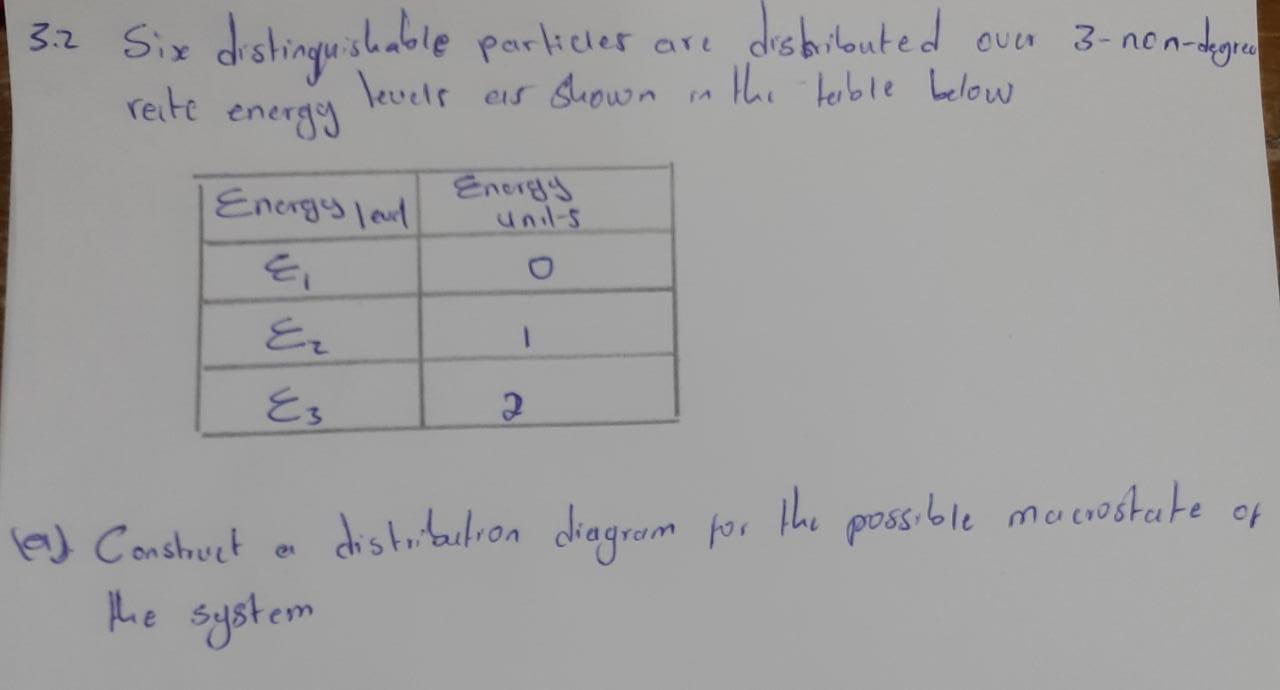 3.2 Six distinguishable particles are distributed over 3-non-degree
reite energy levels as shown in the table below
Energy level Energy units
ε1 0
ε2 1
ε3 2
(a) Construct a distribution diagram for the possible macrostate of
the system